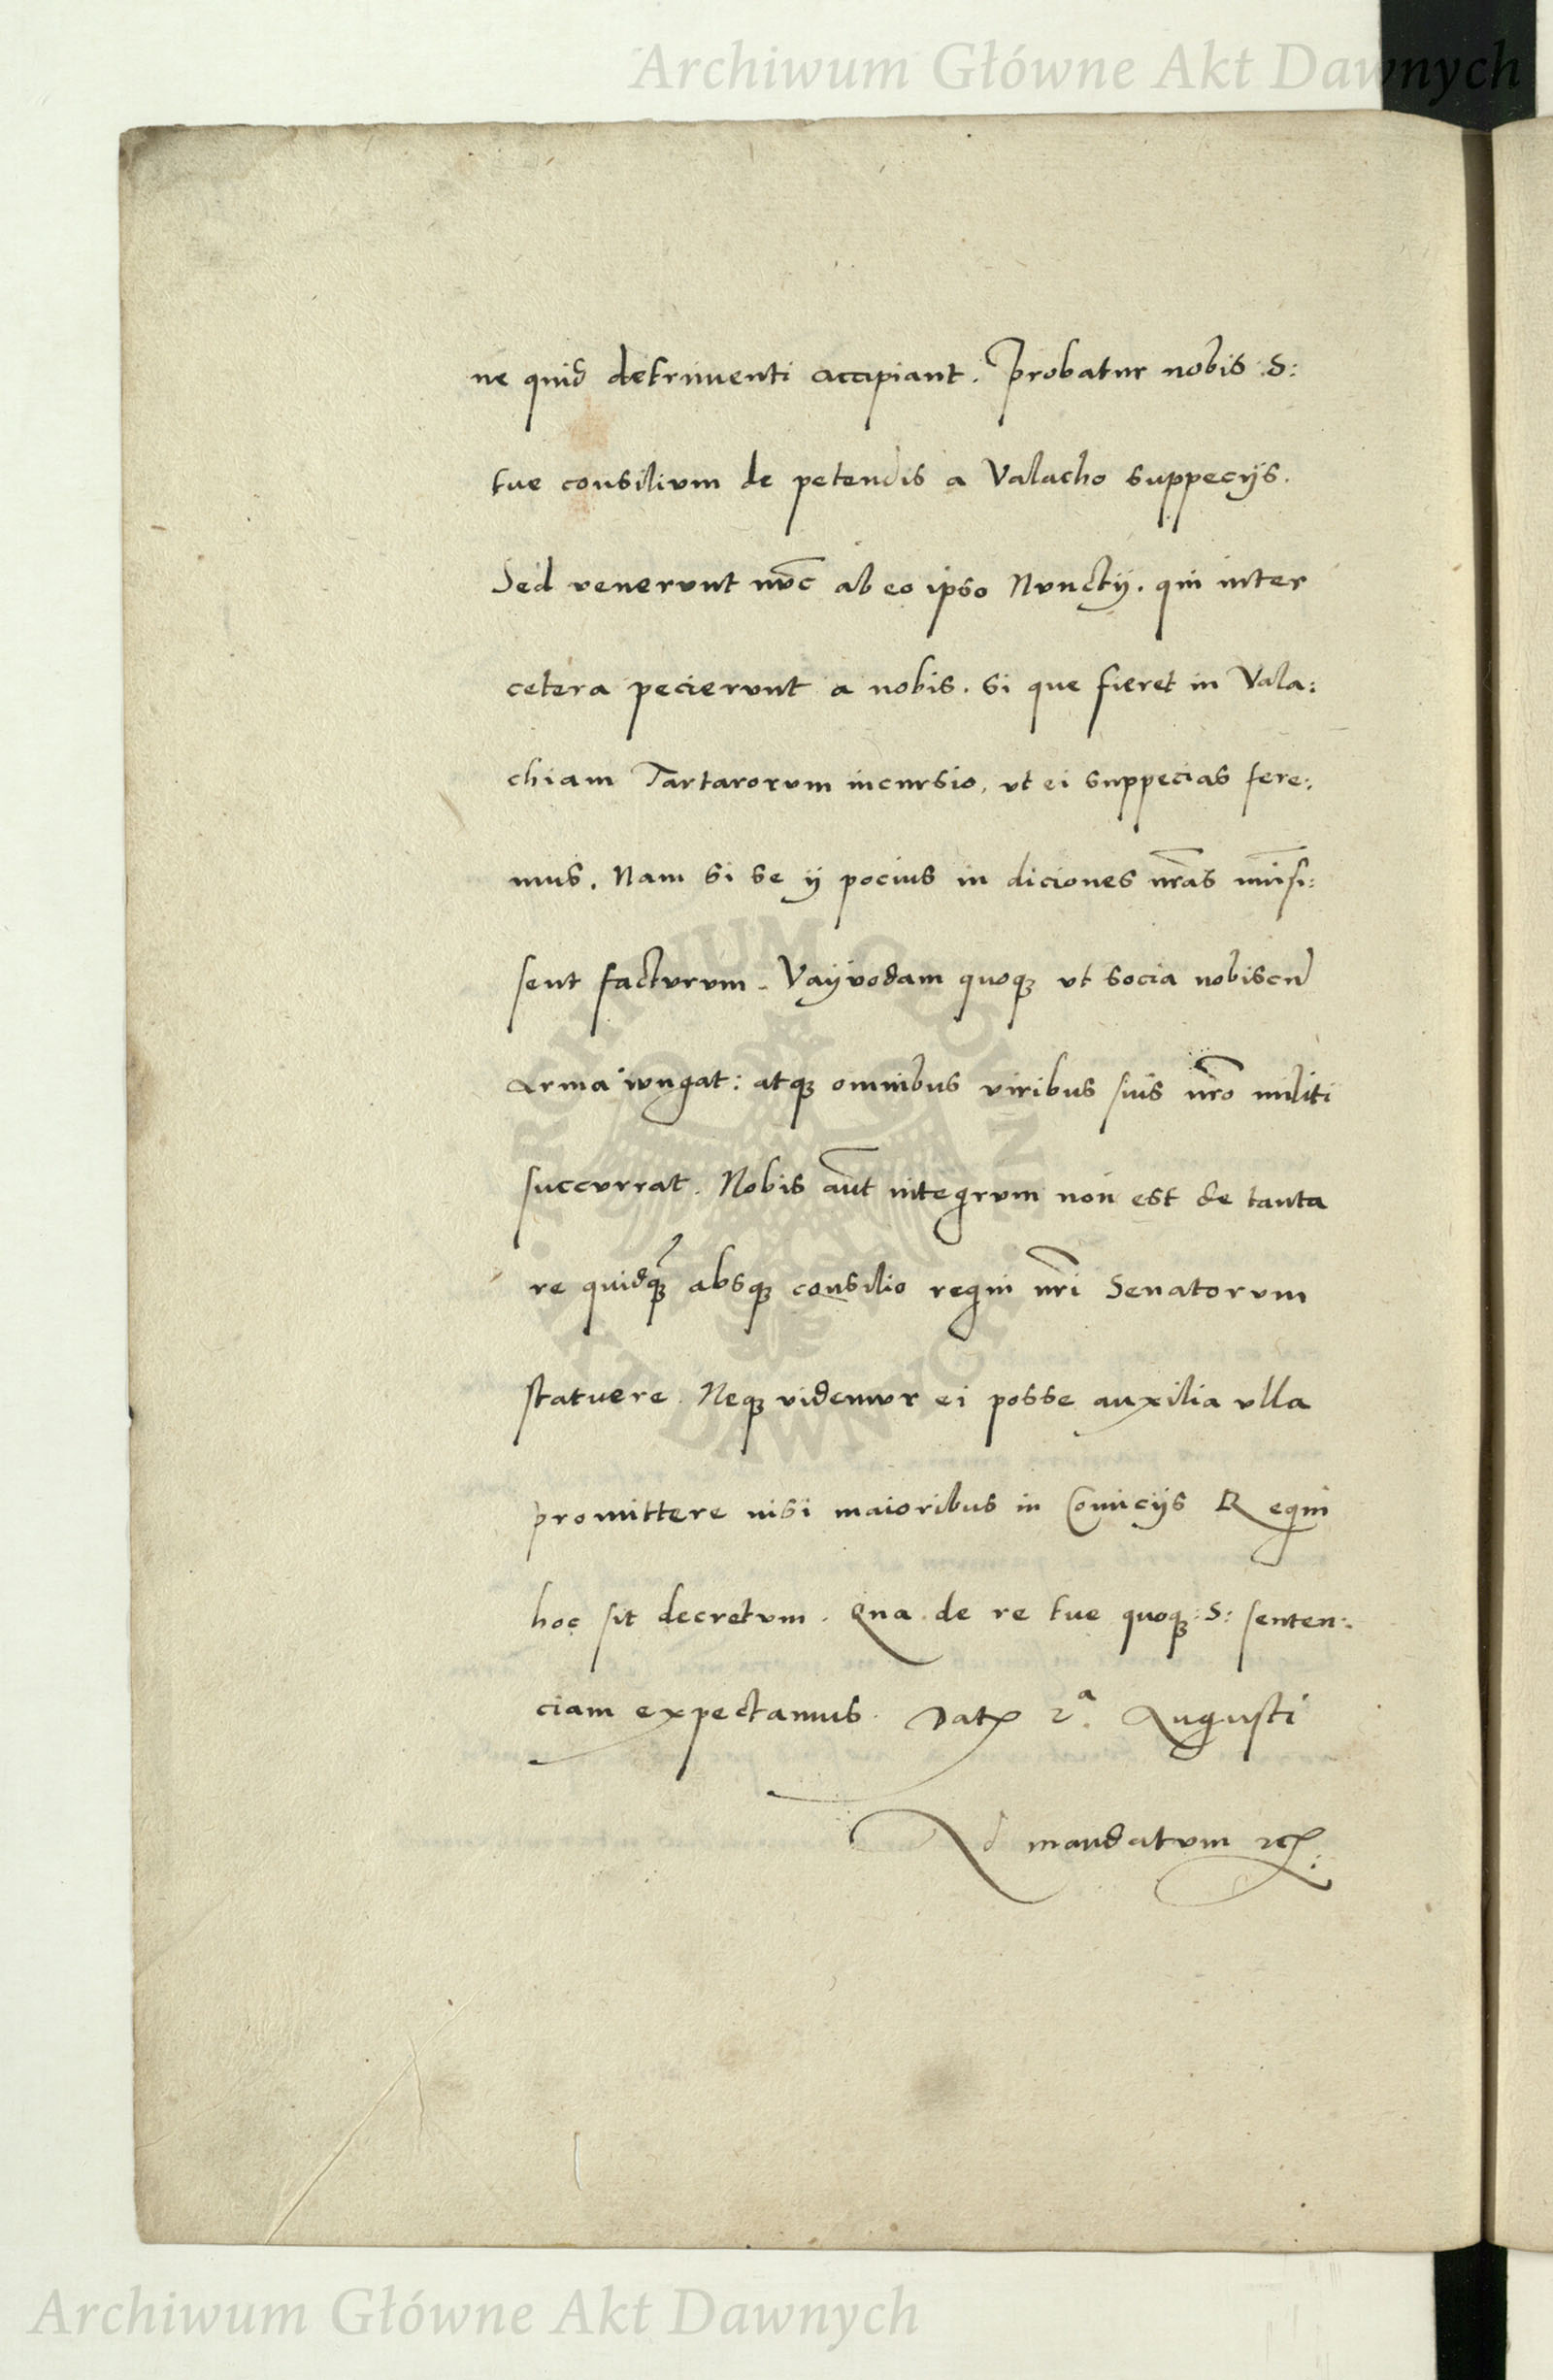 Archiwum Główne Akt Dawnych
ne quid detrimenti accipiant. Probatur nobis .S:
tue consilivm de petendis a Valacho suppecijs.
Sed venervnt nvc̄ ab eo ipso Nvnctij. qui inter
cetera peciervnt a nobis. si que fieret in Vala:
chiam Tartarorvm incursio, vt ei suppecias fere:
mus. Nam si se ij pocius in diciones nr̄as immisi:
sent factvrvm. Vayvodam quoqꝫ vt socia nobiscū
Arma iungat: atqꝫ omnibus viribus suis nr̄o militi
succvrrat. Nobis aūt integrvm non est de tanta
re quidqꝫ absqꝫ consilio regni nr̄i Senatorvm
statvere. Neqꝫ videmvr ei posse auxilia vlla
promittere nisi maioribus in Comicijs Regni
hoc sit decretvm. Qua de re tue quoqꝫ :S: senten:
ciam expectamus. Datꝭ 2ª. Augusti
Ad mandatvm
ARCHIWUM GŁÓWNE · AKT DAWNYCH ·
Archiwum Główne Akt Dawnych